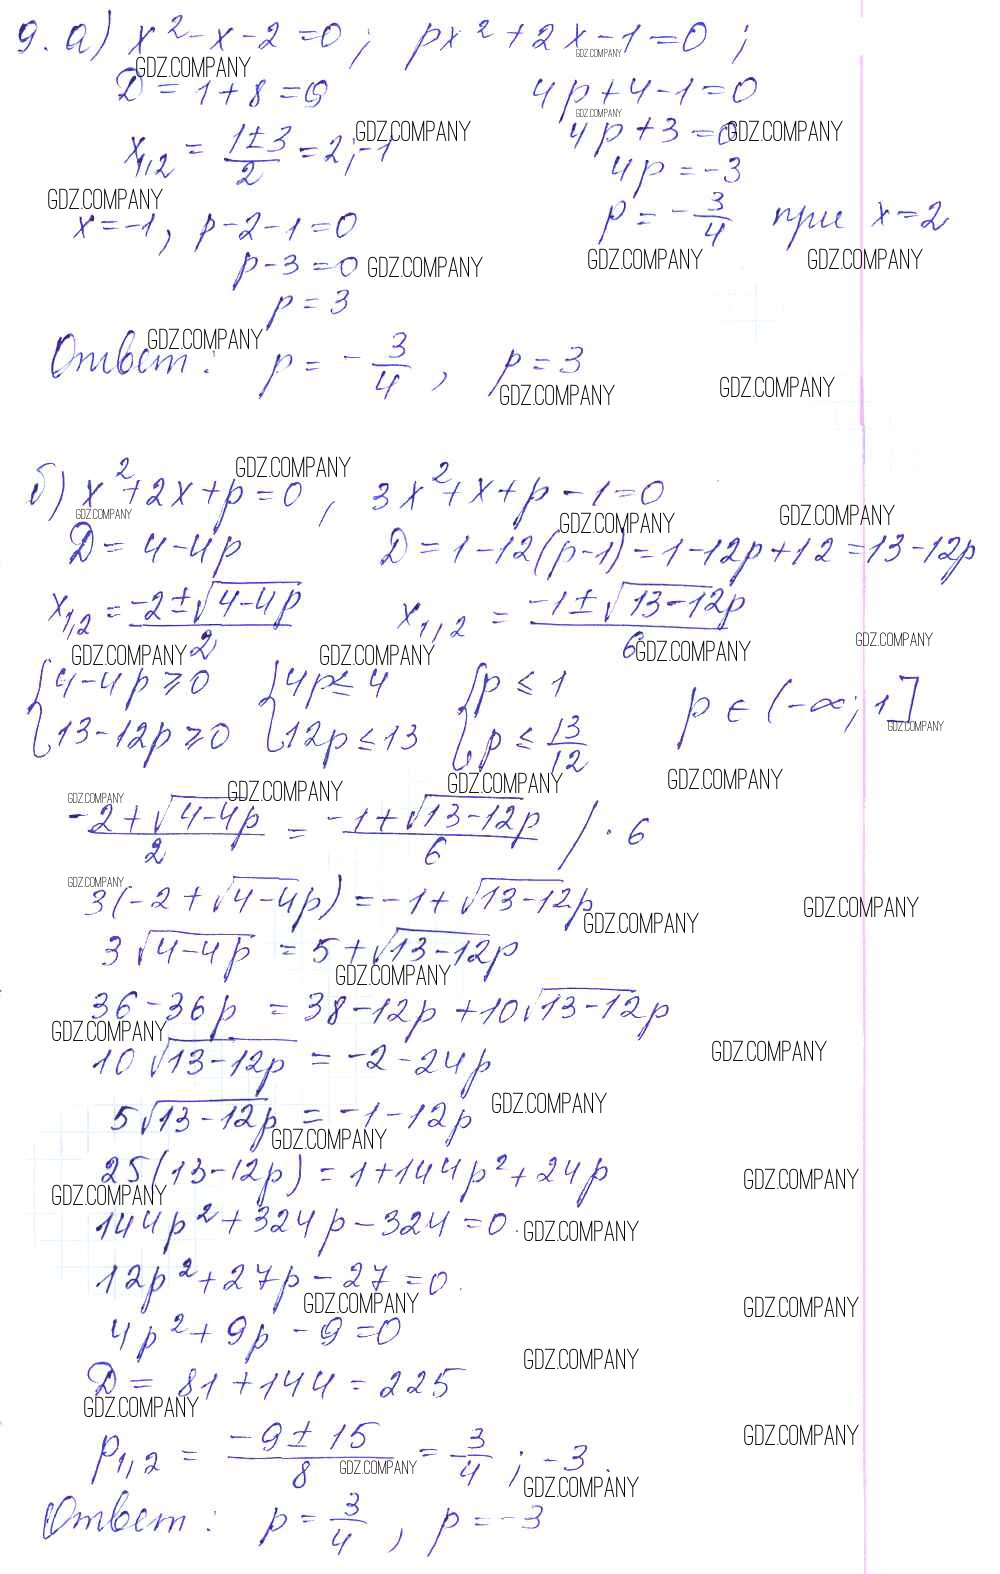 9. а) x² - x - 2 = 0 ; px² + 2x - 1 = 0 ;
Д = 1 + 8 = 9 4p + 4 - 1 = 0
4p + 3 = 0
x₁,₂ = (1 ± 3)/2 = 2 ; -1 4p = -3
x = -1, p - 2 - 1 = 0 p = -3/4 при x = 2
p - 3 = 0
p = 3
Ответ : p = -3/4 , p = 3
б) x² + 2x + p = 0 , 3x² + x + p - 1 = 0
Д = 4 - 4p Д = 1 - 12(p - 1) = 1 - 12p + 12 = 13 - 12p
x₁,₂ = (-2 ± √(4 - 4p))/2 x₁,₂ = (-1 ± √(13 - 12p))/6
{4 - 4p ≥ 0 {4p ≤ 4 {p ≤ 1 p ∈ (-∞; 1]
{13 - 12p ≥ 0 {12p ≤ 13 {p ≤ 13/12
(-2 + √(4 - 4p))/2 = (-1 + √(13 - 12p))/6 / · 6
3(-2 + √(4 - 4p)) = -1 + √(13 - 12p)
3√(4 - 4p) = 5 + √(13 - 12p)
36 - 36p = 38 - 12p + 10√(13 - 12p)
10√(13 - 12p) = -2 - 24p
5√(13 - 12p) = -1 - 12p
25(13 - 12p) = 1 + 144p² + 24p
144p² + 324p - 324 = 0.
12p² + 27p - 27 = 0.
4p² + 9p - 9 = 0
Д = 81 + 144 = 225
p₁,₂ = (-9 ± 15)/8 = 3/4 ; -3.
Ответ : p = 3/4 , p = -3
GDZ.COMPANY